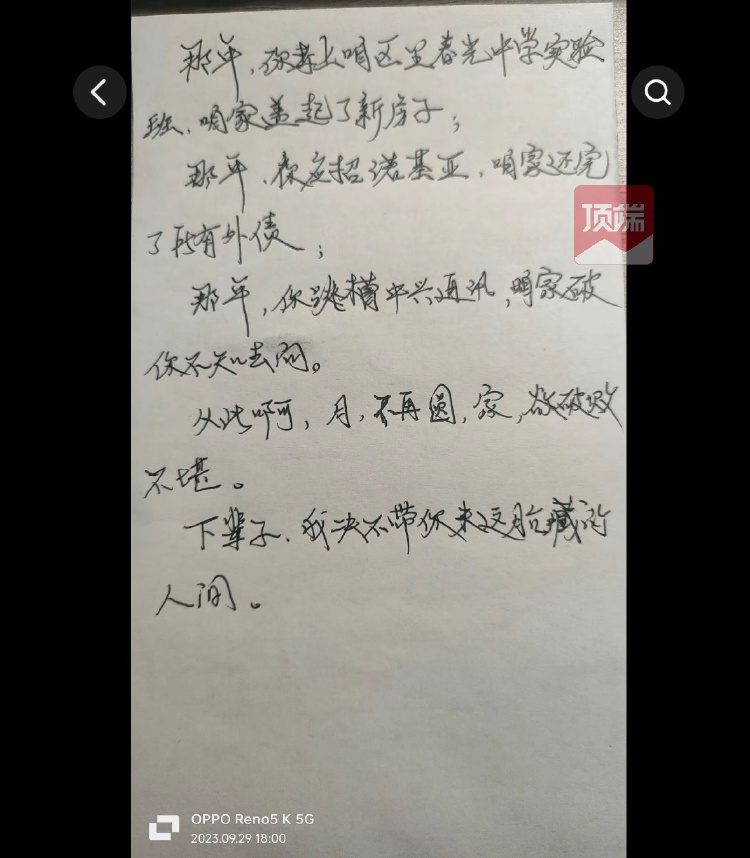 那年，你考上咱区里春光中学实验
班，咱家盖起了新房子；
那年，你应招诺基亚，咱家还完
了所有外债；
顶端
那年，你跳槽中兴通讯，咱家破
你不知去向。
从此啊，月，不再圆，家，破败
不堪。
下辈子，我决不带你来这肮脏的
人间。
OPPO Reno5 K 5G
2023.09.29 18:00